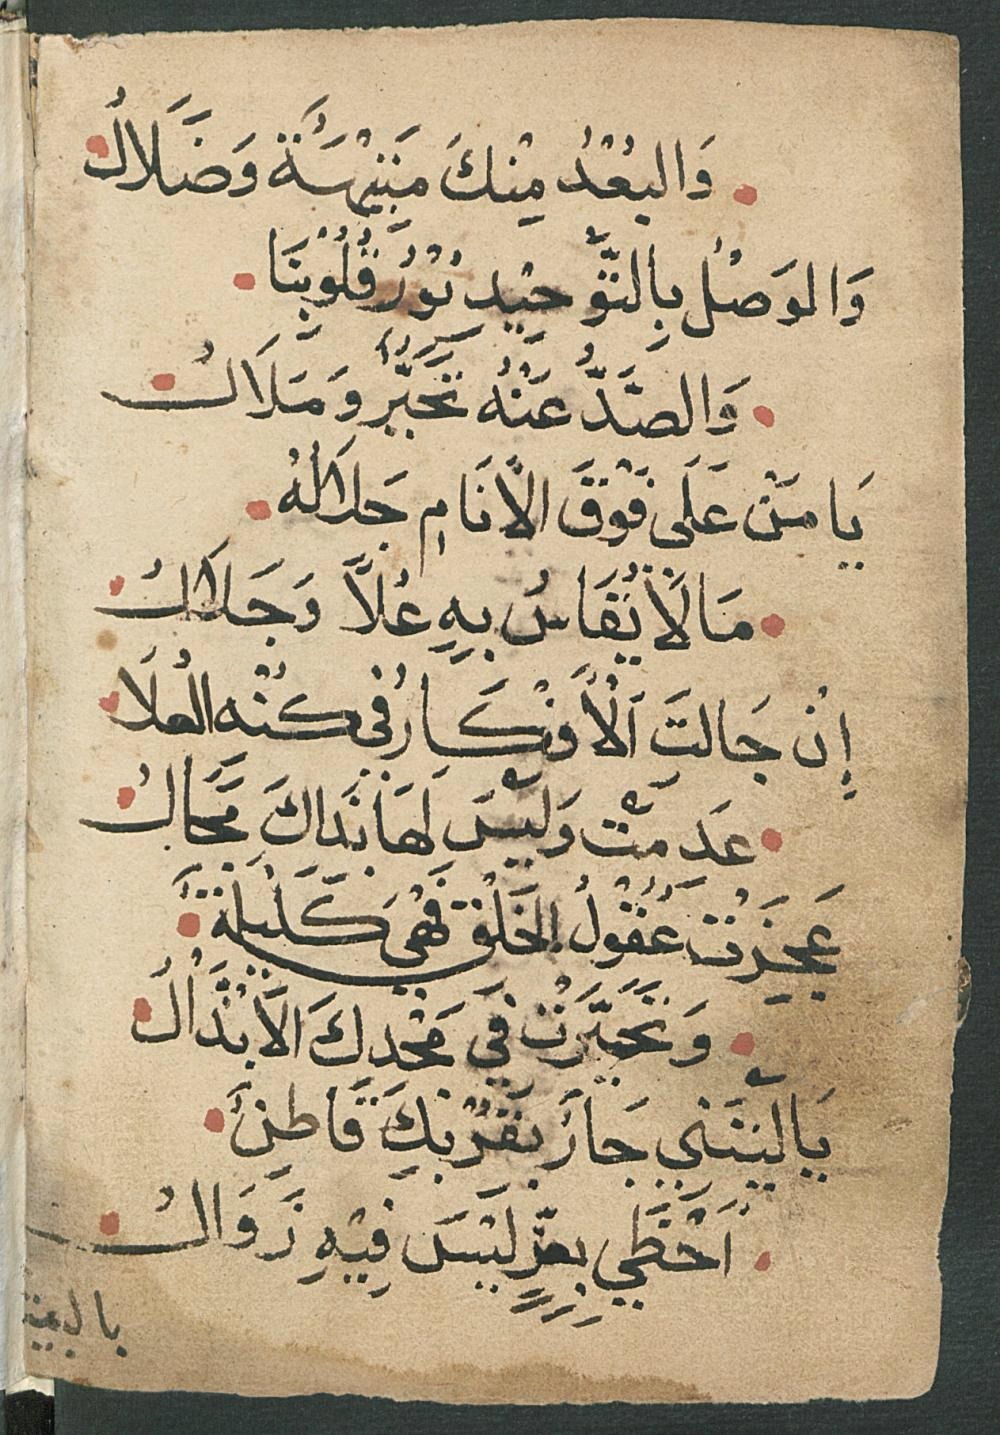 وَالبُعْدُ مِنْكَ مَنِيَّةٌ وَضَلَالُ
وَالوَصْلُ بِالتَّوْحِيْدِ نُوْرُ قُلُوْبِنَا
وَالصَّدُّ عَنْهُ تَحَيُّرٌ وَمَلَالُ
يَا مَنْ عَلَى فَوْقَ الأَنَامِ جَلَالُهُ
مَا لَا يُقَاسُ بِهِ عُلاً وَجَلَالُ
إِنْ جَالَتِ الْأَفْكَارُ فِي كُنْهِ العُلَا
عَدِمَتْ وَلَيْسَ لَهَا بِذَاكَ مَجَالُ
عَجِزَتْ عُقُوْلُ الخَلْقِ فَهْيَ كَلِيْلَةٌ
وَتَحَيَّرَتْ فِي مَجْدِكَ الأَبْدَالُ
يَا لَيْتَنِي جَارٌ بِقُرْبِكَ قَاطِنٌ
أَحْظَي بِعِزٍّ لَيْسَ فِيْهِ زَوَالُ